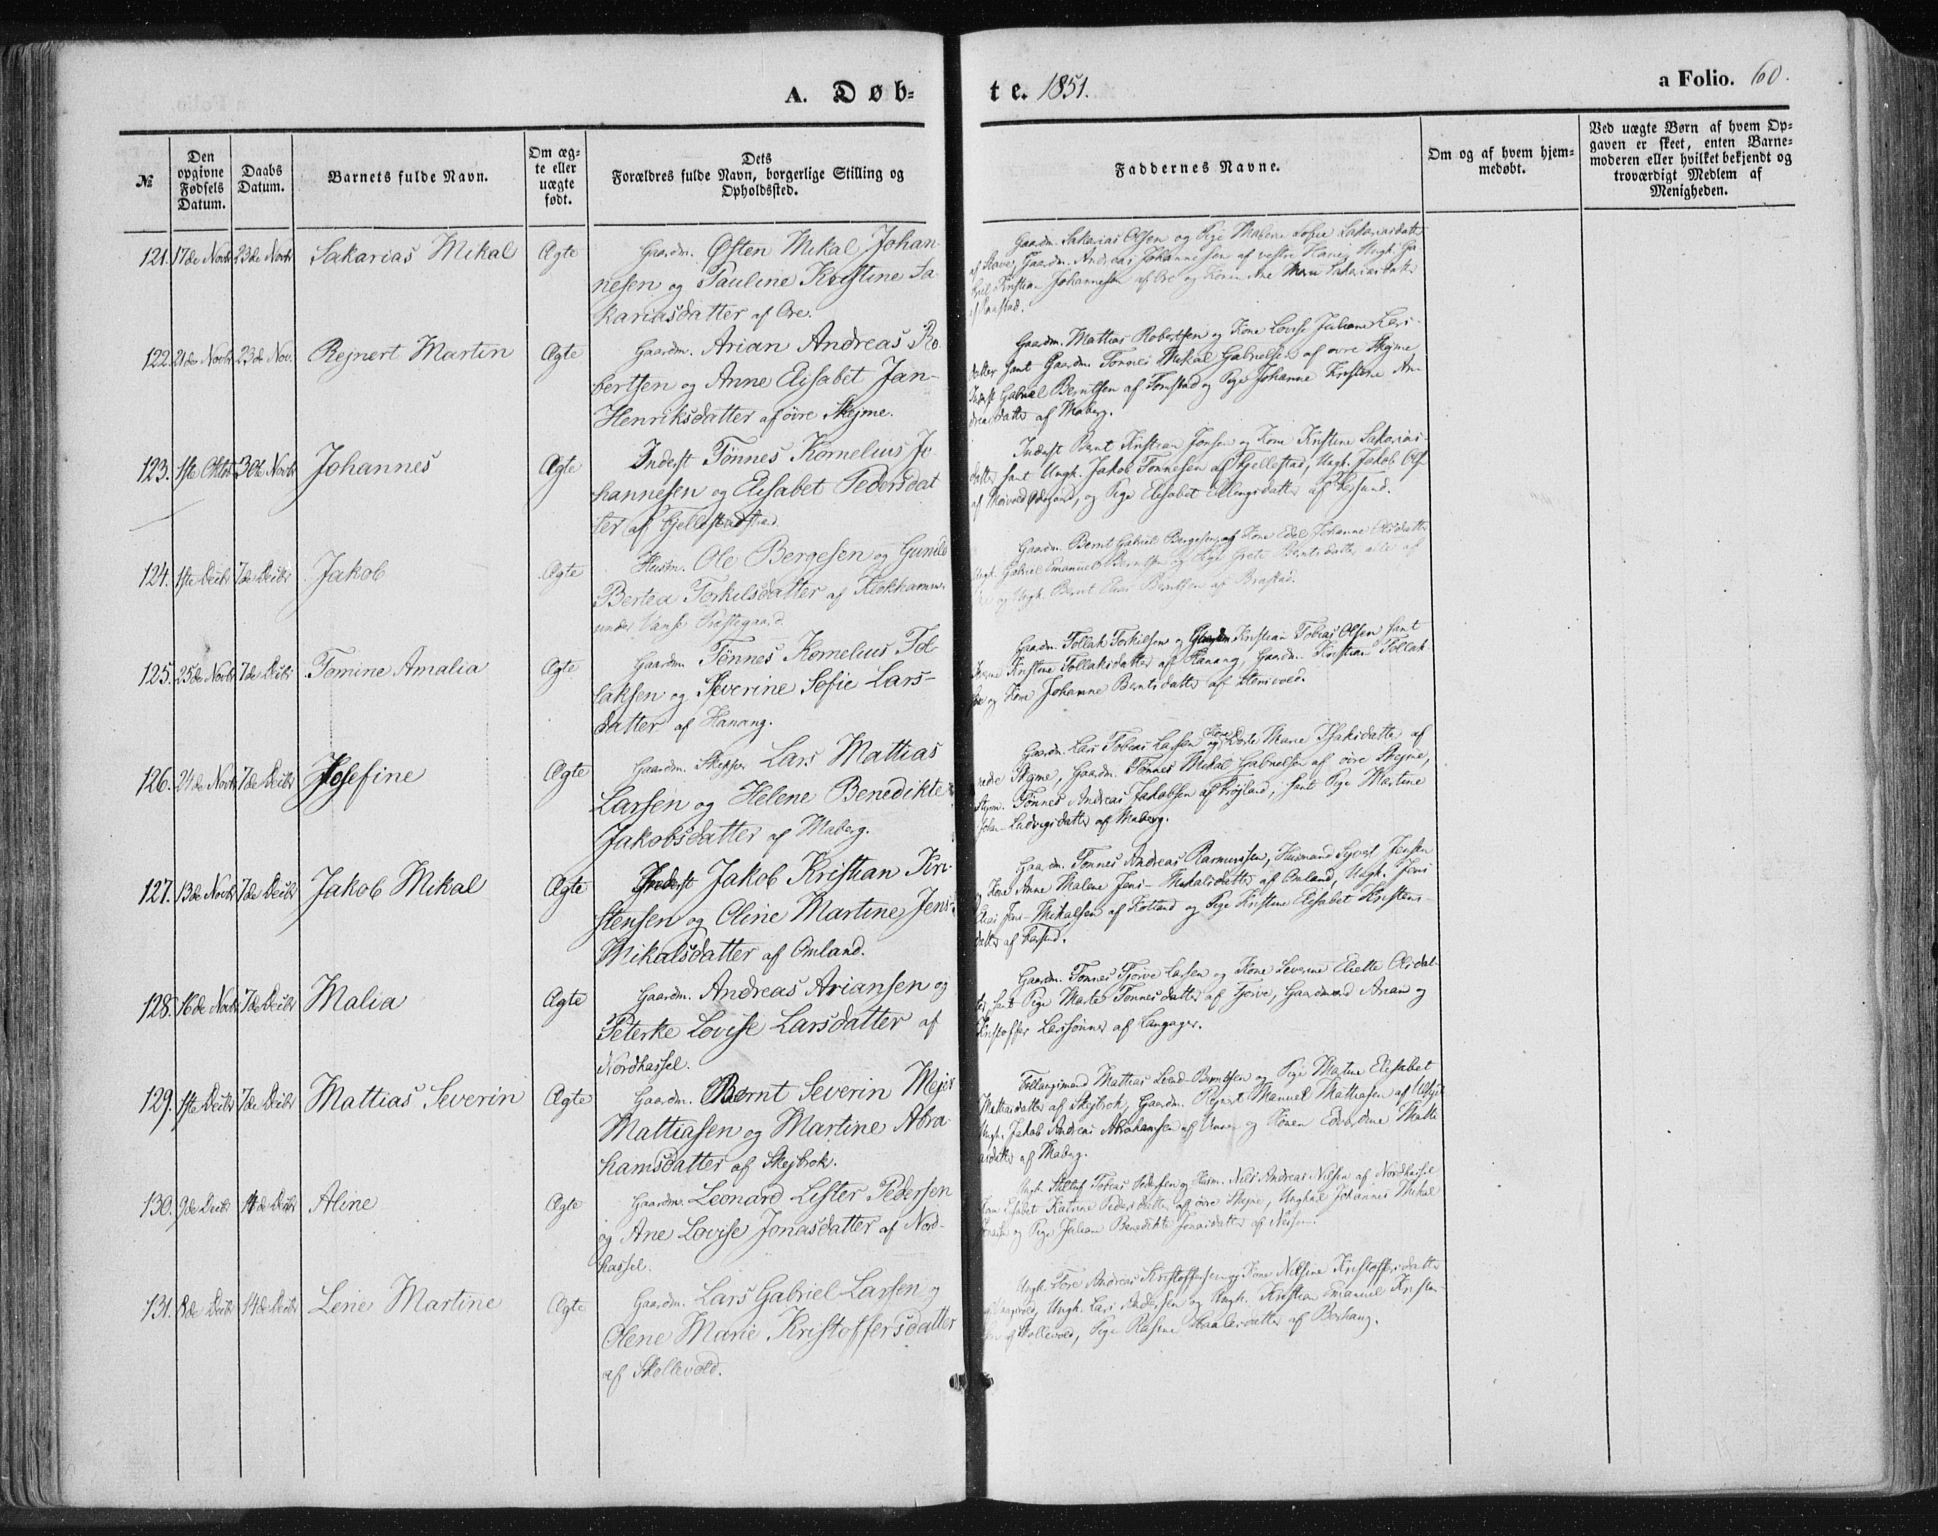 A. Døb-
te. 1851.
a Folio. 60.
№
Den opgivne Fødsels Datum.
Daabs Datum.
Barnets fulde Navn.
Om ægte eller uægte født.
Dets
Forældres fulde Navn, borgerlige Stilling og
Opholdssted.
Faddernes Navne.
Om og af hvem hjemmedøbt.
Ved uægte Børn af hvem Op-
gaven er skeet, enten Barne-
moderen eller hvilket bekjendt og
troværdigt Medlem af
Menigheden.
121. 17de Novbr 23de Novbr Sakarias Mikal Ægte Gaardm. Østen Mikal Johan-
nesen og Pauline Kristine Sa-
kariasdatter af Ore.
Gaardm. Sakarias Olsen og Pige Malene Sofie Sakariasdatter
Gaardm. Andreas Johannessen af vestre Hauig Ungk. Ga-
Kristian Johannessen af Ore og Konen Ane Sakariasdatter
122. 21de Novbr 23de Nov. Rejnert Martin Ægte Gaardm. Arian Andreas Ro-
bertsen og Anne Elisabet Jan-
Henriksdatter af øvre Skejme.
Gaardm. Mattias Robertsen og Kone Lovise Juliane Lars-
datter samt Gaardm. Tønnes Mikal Gabrielsen af øvre Skejme
Inderst Gabriel Berntsen af Tomstad og Pige Johanne Kristine An-
dreasdatter af Maberg.
123. 1ste Oktbr 30te Novbr Johannes Ægte Inderst Tønnes Kornelius Jo-
hannesen og Elisabet Pedersdat
ter af Fjellestad
Inderst Bernt Kristian Jonsen og Kone Kristine Sakarias-
datter samt Ungk. Jakob Tønnesen af Fjellestad, Ungk. Jakob Ols
af Meivold Ødegaard, og Pige Elisabet Ellingsdatter af Farsund.
124. 1ste Decbr 7de Decbr Jakob Ægte Husm. Ole Bergesen og Gunild
Bertea Torkilsdatter af Klokhamm.
under Vanse Præstegaard.
Gaardm. Bernt Gabriel Bergesen og Kone Edel Johanne Olsdatter
Ungk. Gabriel Emanuel Berntsen og Pige Grete Berntsdatter alle af
og Ungk. Bernt Elias Berntsen af Brastad.
125. 25de Novbr 7de Decbr Tomine Amalia Ægte Gaardm. Tønnes Kornelius Tol-
laksen og Severine Sofie Lars-
datter af Hanang.
Gaardm. Tollak Torkilsen og Kristian Tobias Olsen samt
Kristine Tollaksdatter af Hanang, Gaardm. Kristian Tollak-
og Kone Johanne Berntsdatter af Stensved.
126. 24de Novbr 7de Decbr Josefine Ægte Gaardm. Skipper Lars Mattias
Larsen og Helene Benedikte
Jakobsdatter af Maberg.
Gaardm. Lars Tobias Larsen og Kone Dorte Marie Isaksdatter af
nedre Skejme, Gaardm. Tønnes Mikal Gabrielsen af øvre Skejme,
Tønnes Andreas Jakobsen af Frøjland, samt Pige Martine
Ludvigsdatter af Maberg.
127. 13de Novbr 7de Decbr Jakob Mikal Ægte Inderst Jakob Kristian Kri-
stensen og Oline Martine Jens-
Mikalsdatter af Omland.
Gaardm. Tønnes Andreas Rasmussen, Husmand Syvert Jensen
og Kone Anne Malene Jens-Mikalsdatter af Omland, Ungk. Jens
Elias Jens-Mikalsen af Kotland og Pige Kristine Elisabet Kristens-
datter af Farsund.
128. 16de Novbr 7de Decbr Malia Ægte Gaardm. Andreas Ariansen og
Peterke Lovise Larsdatter af
Nordhassel.
Gaardm. Tønnes Tjorve Larsen og Kone Severine Eliette Olsdat-
ter samt Pige Marte Tønnesdatter af Tjorve, Gaardmænd Arian og
Kristoffer Larssønner af Langager.
129. 1ste Decbr 7de Decbr Mattias Severin Ægte Gaardm. Bernt Severin Mejer
Mattiasen og Martine Abra-
hamsdatter af Skejbrok.
Follaugsmand Mattias Lund-Berntsen og Pige Martine Elisabet
Mattiasdatter af Skejbrok, Gaardm. Rejnert Manuel Mattiasen af
Ungk. Jakob Andreas Abrahamsen af og Konen Edvardine Matti
asdatter af Maberg.
130. 9de Decbr 14de Decbr Aline Ægte Gaardm. Leonard Lister Pedersen
og Ane Lovise Jonasdatter af Nord-
hassel.
Ungk. Tobias Pedersen og Husm. Nils Andreas Nilsen af Nordhassel
Elisabet Katrine Pedersdatter af øvre Skejme, Ungkarl Johannes Mikal
og Pige Juliane Benedikte Jonasdatter af Nesheim.
131. 8de Decbr 14de Decbr Lene Martine Ægte Gaardm. Lars Gabriel Larsen og
Olene Marie Kristoffersdatter
af Skollevold.
Ungk. Tore Andreas Kristoffersen og Kone Nilsine Kristoffersdatter
Ungk. Lars Andersen og Ungk. Kristian Emanuel Kristen-
af Skollevold, Pige Rasine Haalersdatter af Berhaug.